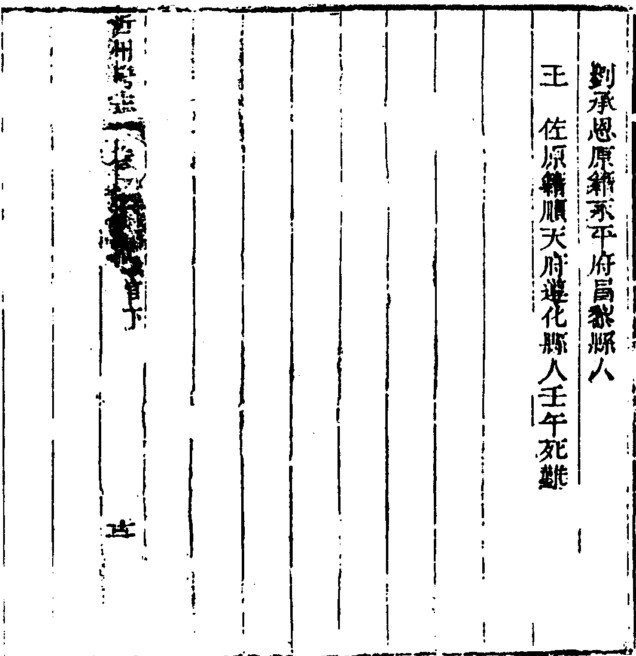 劉承恩原籍永平府昌黎縣人
王　佐原籍順天府遵化縣人壬午死難
州志
官下